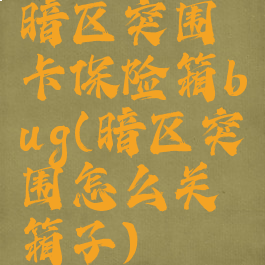 暗区突围
卡保险箱b
ug(暗区突
围怎么关
箱子)